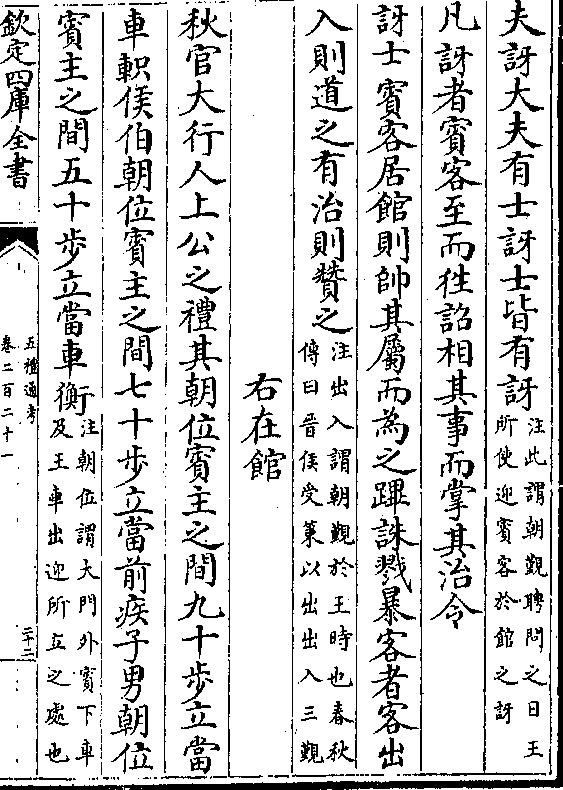 夫訝大夫有士訝士皆有訝注此謂朝覲聘問之日王
所使迎賓客於館之訝
凡訝者賓客至而徃詔相其事而掌其治令
訝士賓客居館則帥其屬而為之蹕誅戮暴客者客出
入則道之有治則贊之注出入謂朝覲於王時也春秋
傳曰晉侯受䇿以出出入三覲
右在館
秋官大行人上公之禮其朝位賓主之間九十步立當
車軹侯伯朝位賓主之間七十步立當前疾子男朝位
賓主之間五十步立當車衡注朝位謂大門外賓下車
及王車出迎所立之處也
欽定四庫全書
五禮通考
卷二百二十一